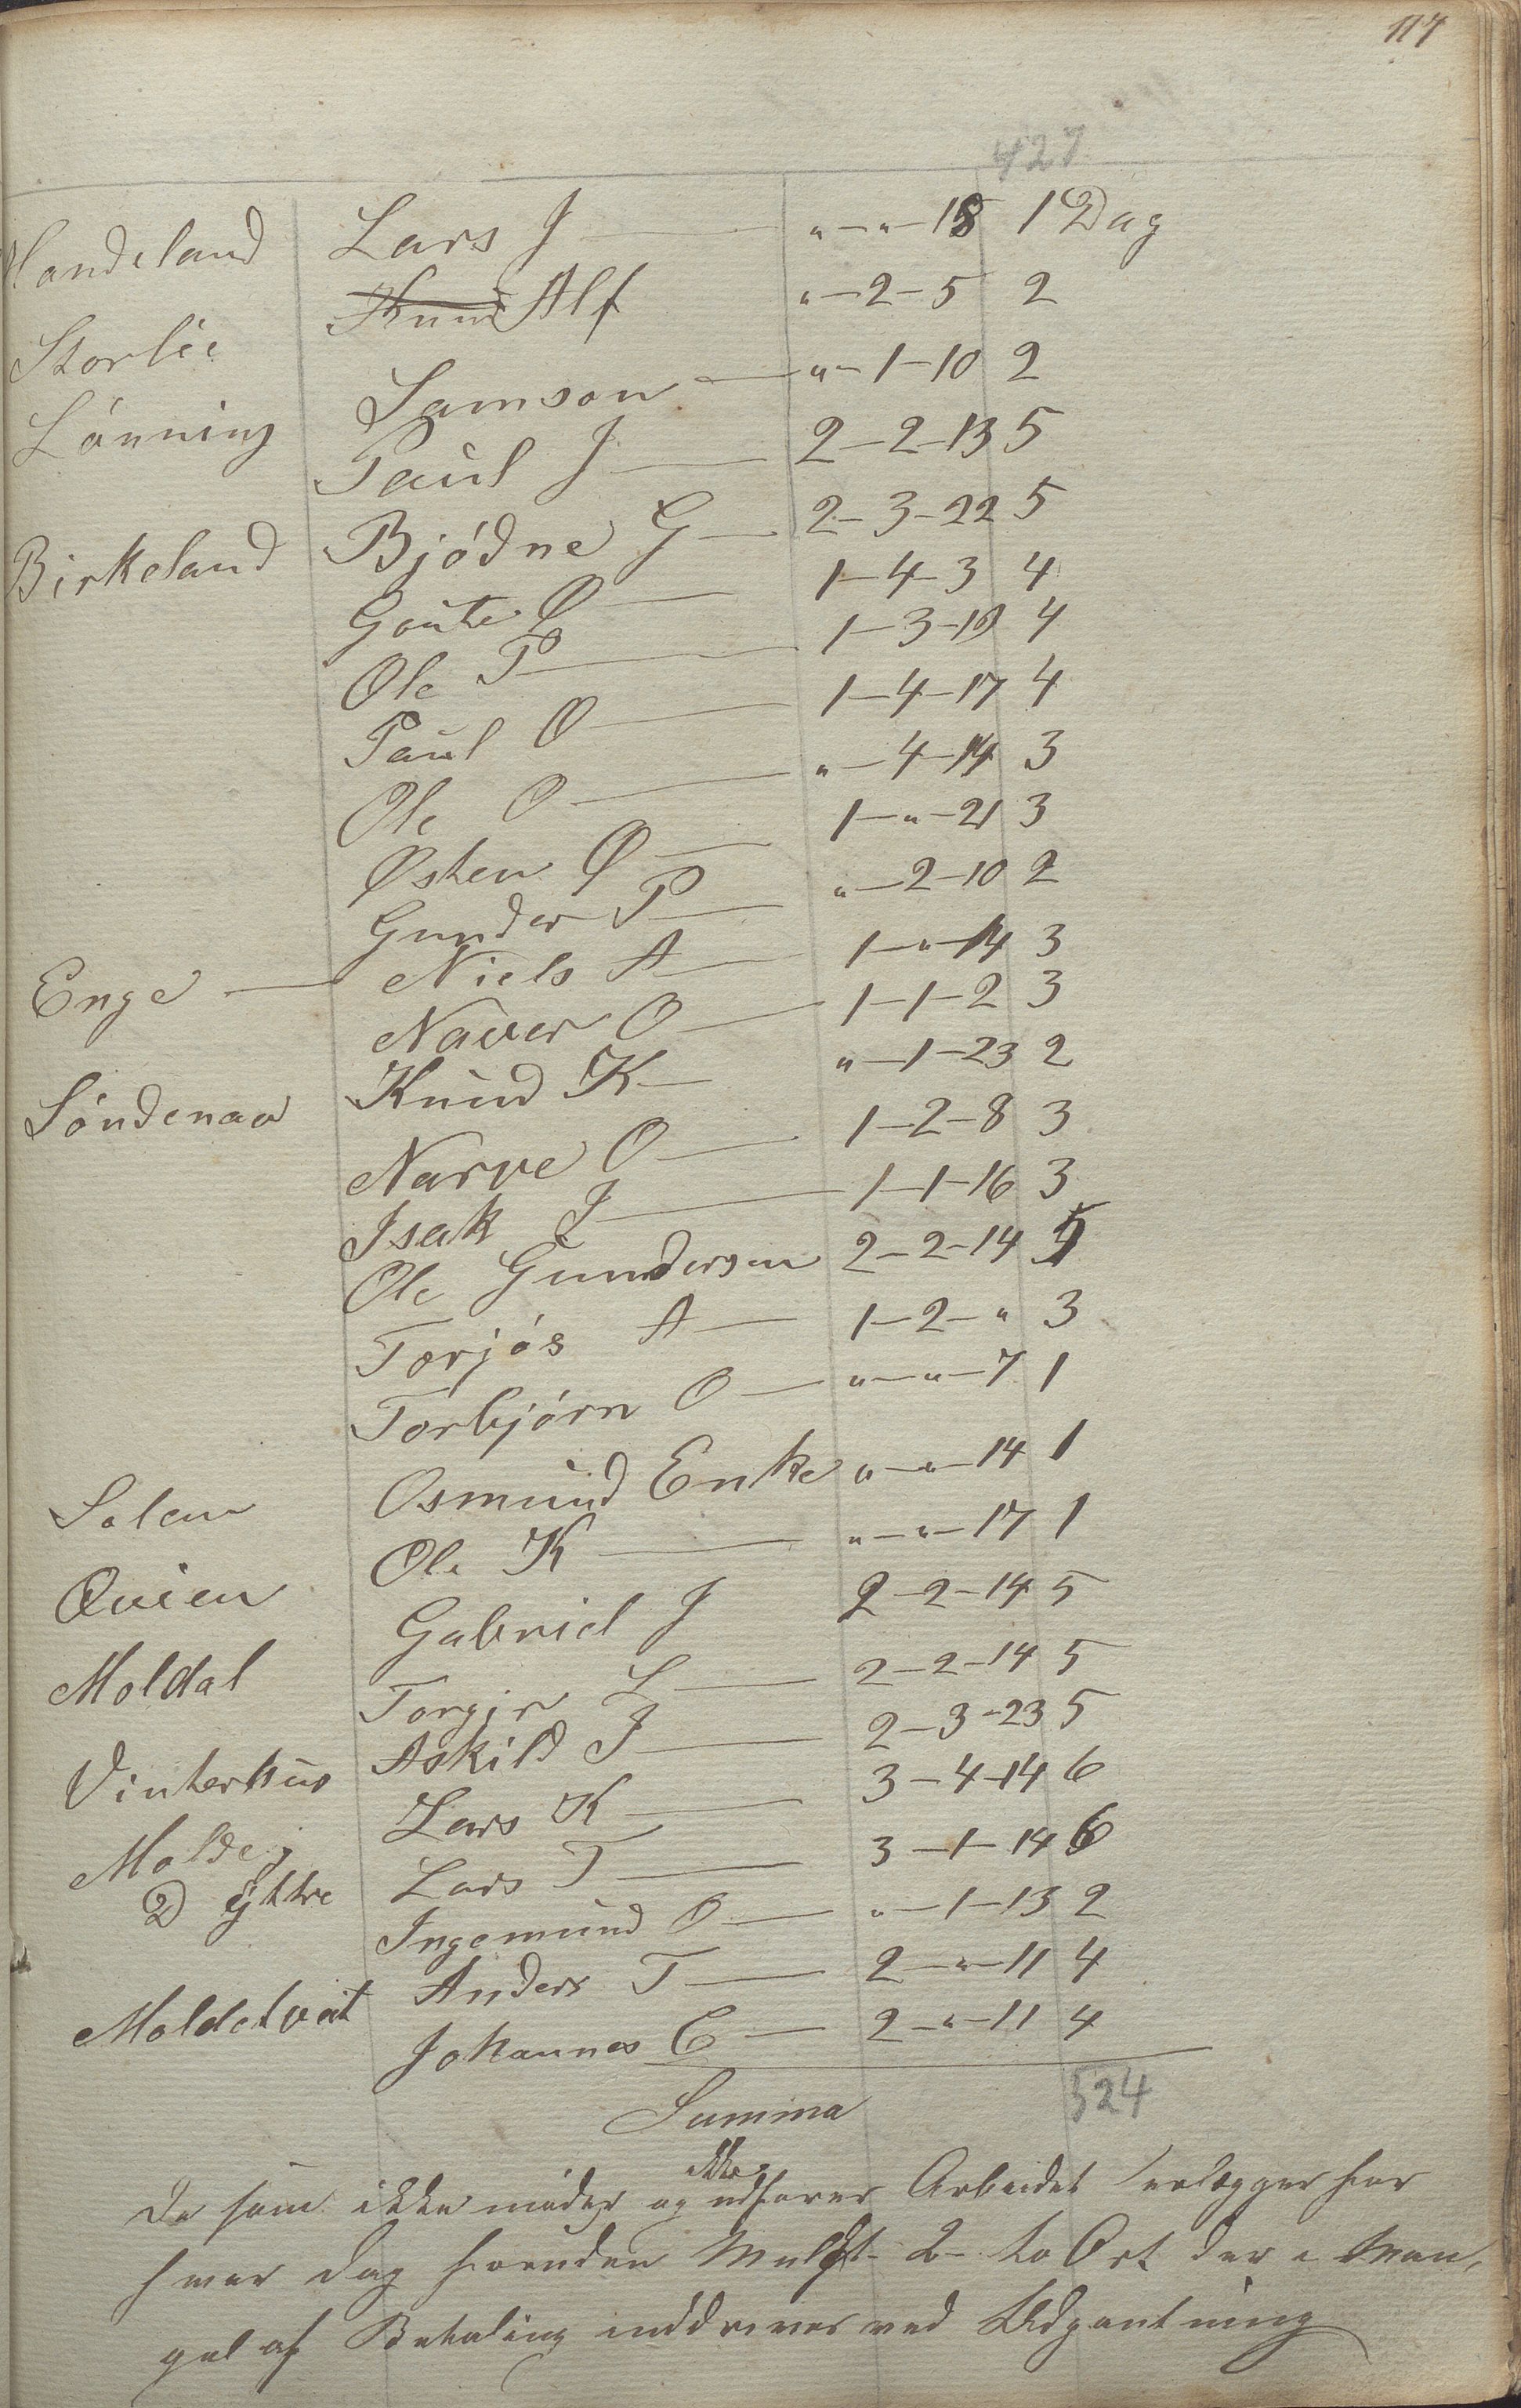 117
427
Handeland Lars J — „ — „ — 18 1 Dag
Knud Alf „ — 2 — 5 2
Storlie Samson — „ — 1 — 10 2
Lønning Paul J — 2 — 2 — 13 5
Birkeland Bjødne G — 2 — 3 — 22 5
Goute Ø — 1 — 4 — 3 4
Ole P — 1 — 3 — 19 4
Paul O — 1 — 4 — 17 4
Ole O — „ — 4 — 14 3
Østen Ø — 1 — „ — 21 3
Gunder P — „ — 2 — 10 2
Enge — Niels A — 1 — „ — 14 3
Naver O — 1 — 1 — 2 3
Søndenaa Knud K — „ — 1 — 23 2
Narve O — 1 — 2 — 8 3
Isak J — 1 — 1 — 16 3
Ole Gundersen 2 — 2 — 14 5
Torjøs A — 1 — 2 — „ 3
Torbjørn O — „ — „ — 7 1
Solem Osmund Enke „ — „ — 14 1
Qvien Ole K — „ — „ — 17 1
Moldal Gabriel J 2 — 2 — 14 5
Torgir L — 2 — 2 — 14 5
Vinterhus Askild J — 2 — 3 — 23 5
Lars K — 3 — 4 — 14 6
Molde Lars T — 3 — 1 — 14 6
D yttre Ingemund O — „ — 1 — 13 2
Anders T — 2 — „ — 11 4
Moldetvet Johannes E — 2 — „ — 11 4
Summa 524
De som ikke møder og ikke udfører Arbeidet erlægger for
hver Dag foruden Mulgt - 2 - to Ort der i Man,
gel af Betaling inddrives ved Udpantning